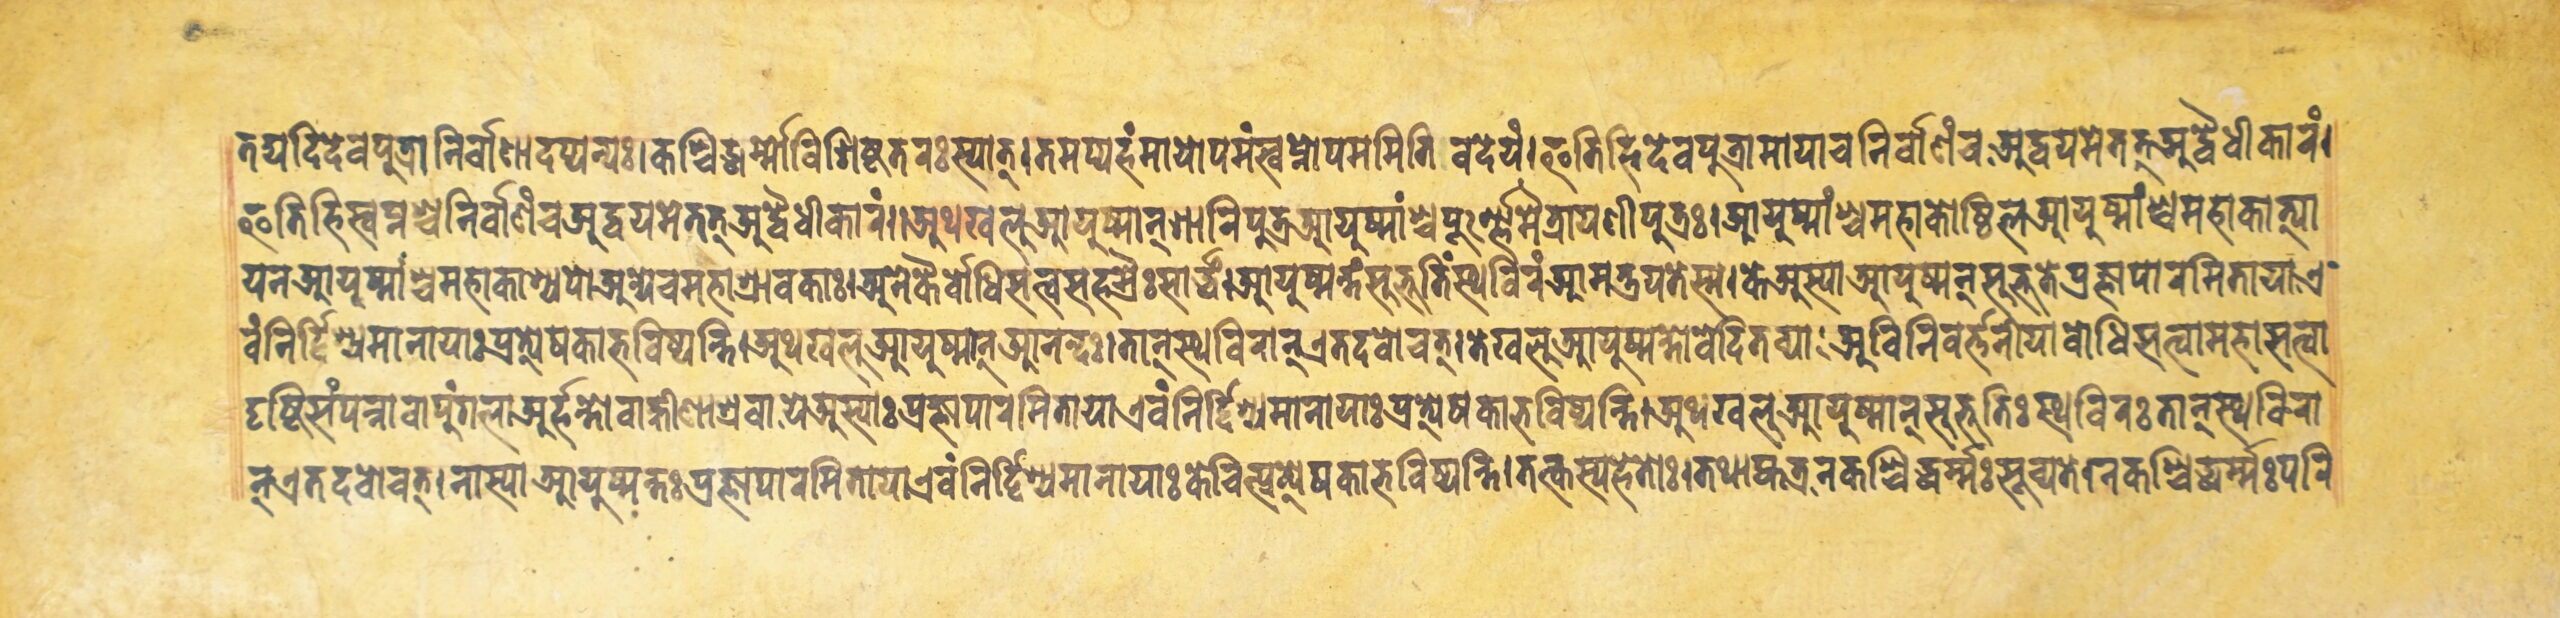 तद्यदिदेवपुत्रानिर्वाणादप्यन्यः।कश्चिद्धर्म्मोविशिष्टतरःस्यात्।तमप्यहंमायोपमंस्वप्नोपममिति वदेयं।इतिहिदेवपुत्रामायाचनिर्वाणंच अद्वयमेतत्अद्वैधीकारं।
इतिहिस्वप्नश्चनिर्वाणंचअद्वयमेतत्अद्वैधीकारं॥अथखलुआयुष्मान्शारिपुत्रआयुष्मांश्चपूर्ण्णमैत्रायणीपुत्रः।आयुष्मांश्चमहाकोष्ठिलआयुष्मांश्चमहाकात्या
यनआयुष्मांश्चमहाकाश्यपोअन्येचमहाश्रावकाः।अनेकैर्बोधिसत्वसहस्रैःसार्द्धं।आयुष्मन्तंसुभुतिंस्थविरंआमन्त्रयतेस्म।केअस्याआयुष्मन्सुभुतेप्रज्ञापारमितायाए
वंनिर्द्दिश्यमानायाःप्रत्येषकाभविष्यन्ति।अथखलुआयुष्मान्आनन्दः।तान्स्थविरान्एतदवोचत्।तेखलुआयुष्मन्तोवेदितव्याः अविनिवर्त्तनीयाबोधिसत्वामहासत्वा
दृष्टिसंपन्नावापुंगलाअर्हन्तोवाक्षीणाश्रवा येअस्याःप्रज्ञापारमितायाएवंनिर्द्दिश्यमानायाःप्रत्येषकाभविष्यन्ति।अथखलुआयुष्मान्सुभुतिःस्थविरःतान्स्थविरा
न्एतदवोचत्।नास्याआयुष्मन्तःप्रज्ञापारमितायाएवंनिर्द्दिश्यमानायाःकेचित्प्रत्येषकाभविष्यन्ति।तत्कस्यहेतोः।तथाह्यत्रनकश्चिद्धर्म्मःसूच्यतेनकश्चिद्धर्म्मःपरि